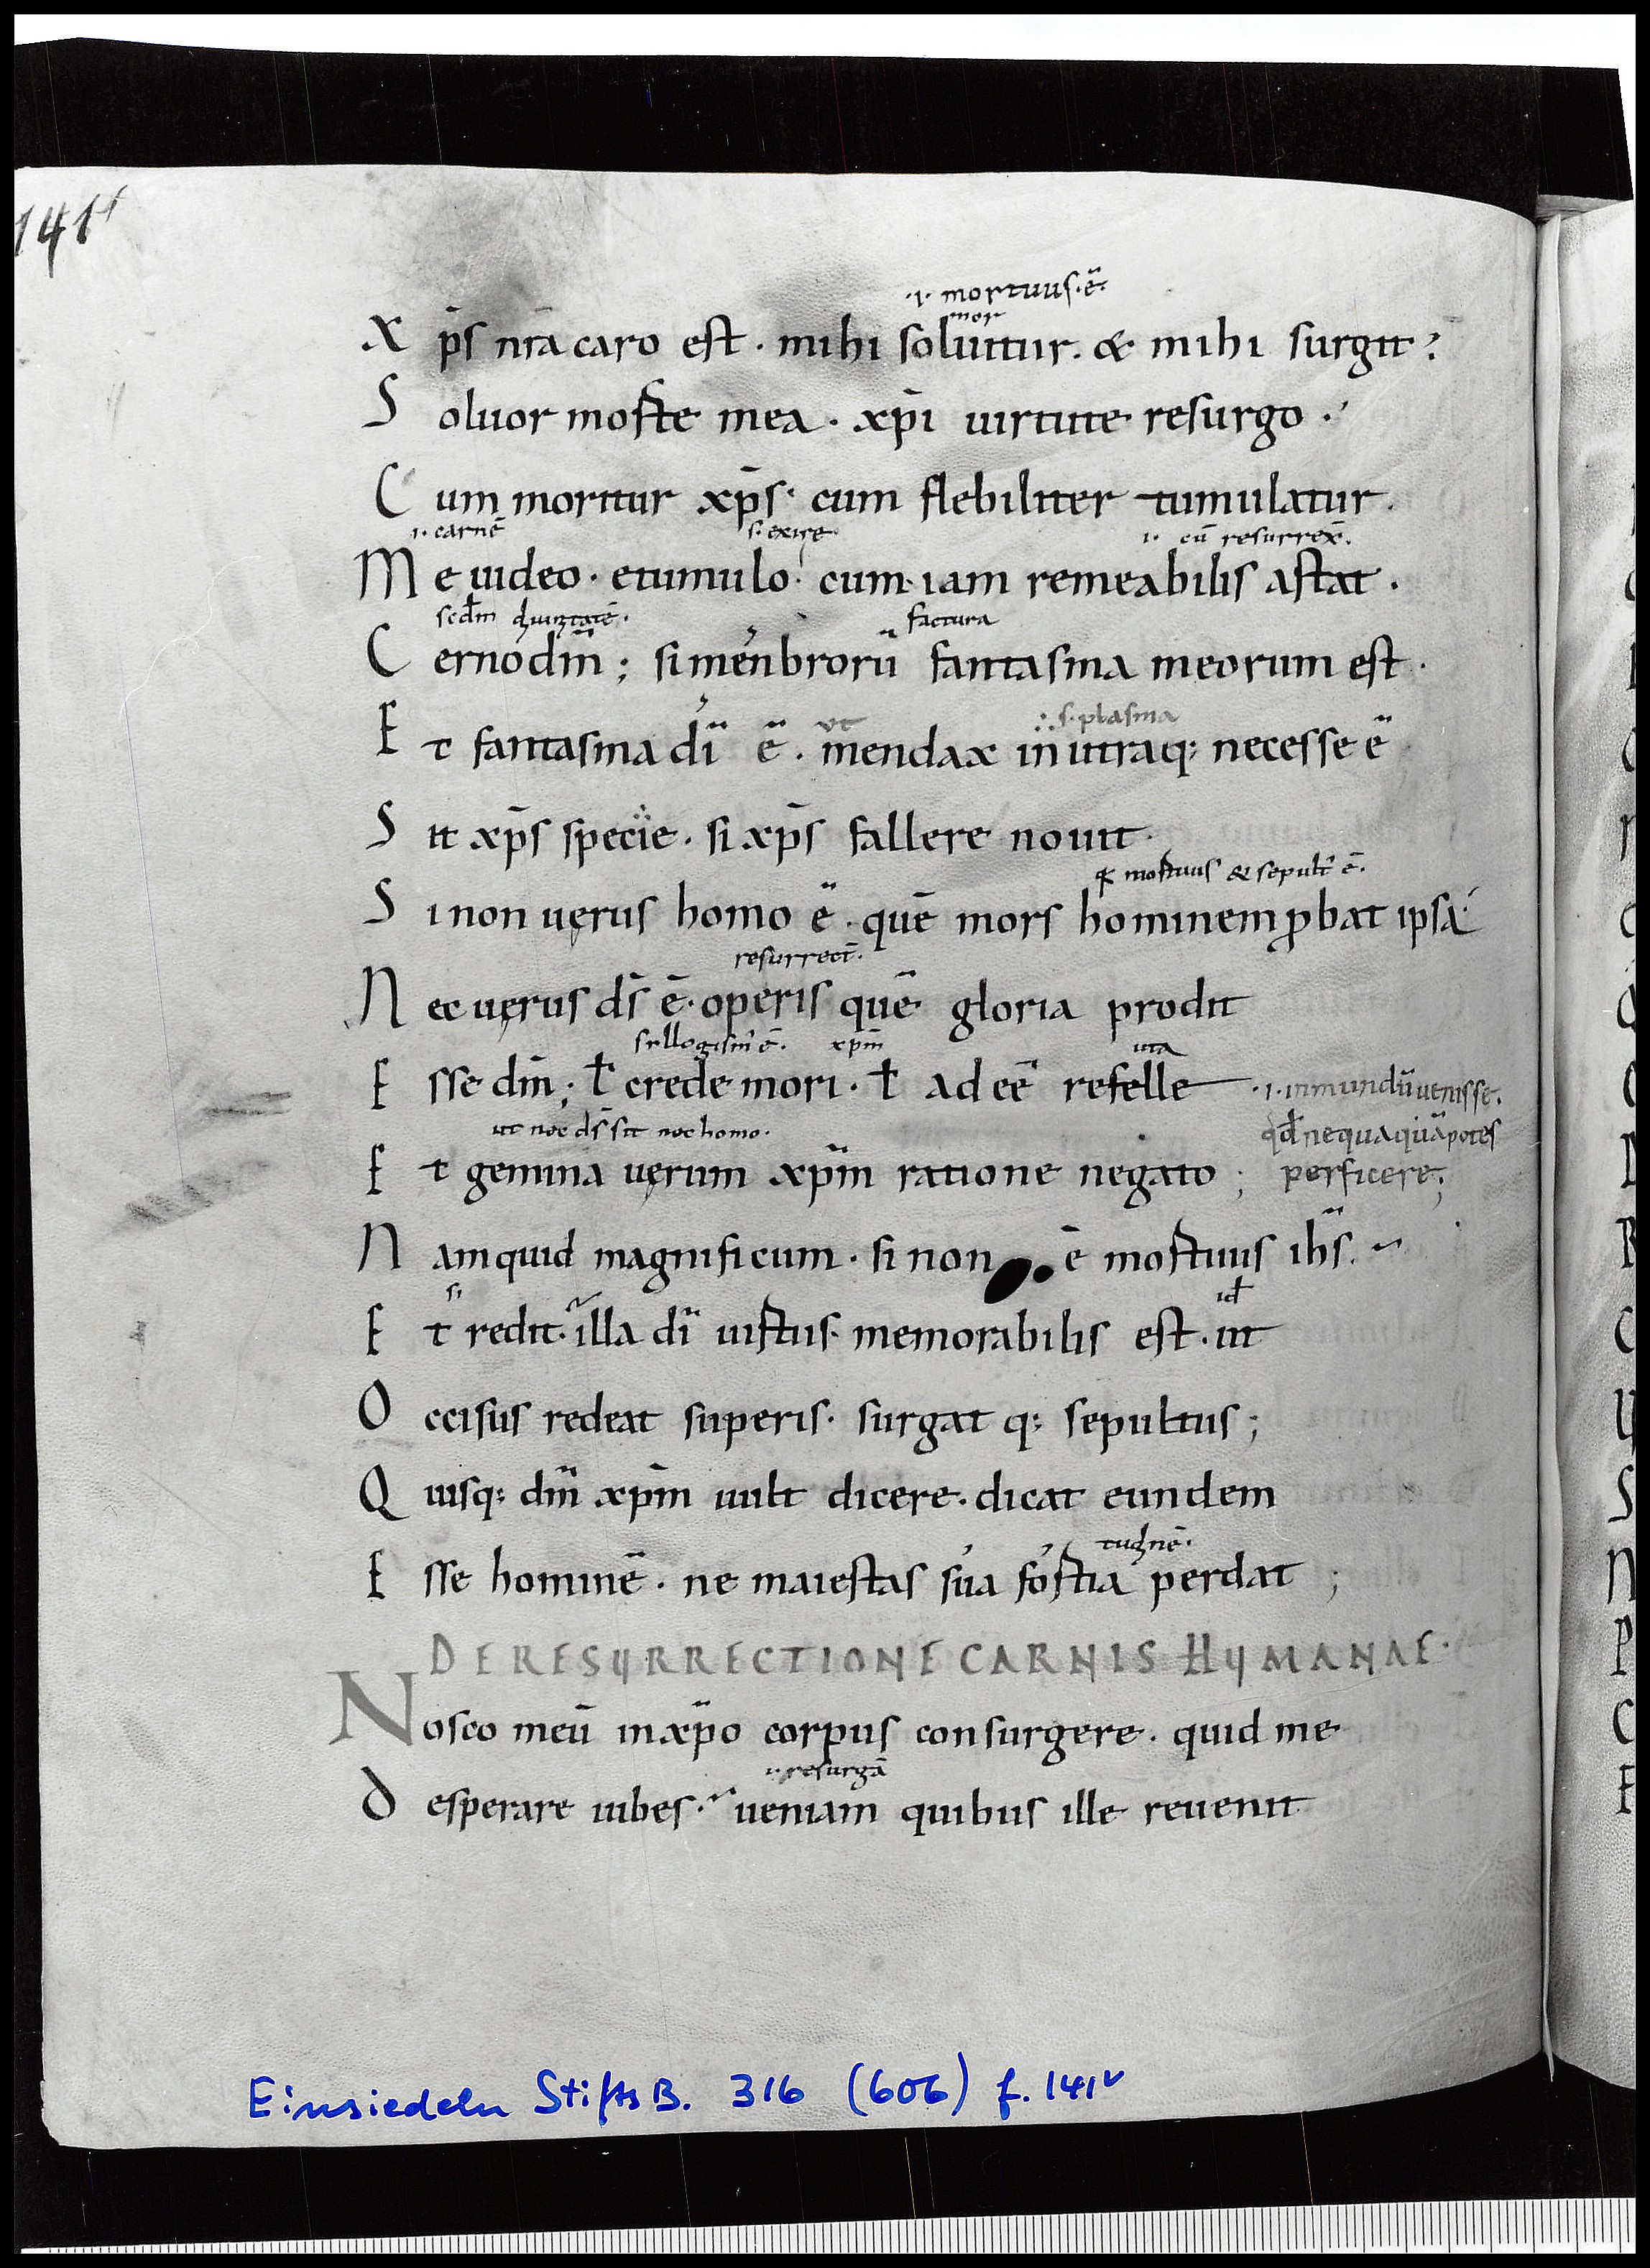 141v
·i· mortuus·ē·
mor
X p̄s nr̄a caro est · mihi soluitur · & mihi surgit ?
S oluor morte mea · xp̄i uirtute resurgo ·
C um moritur xp̄s · cum flebiliter tumulatur ·
i· carnē s· exire i· cū resurrex̄·
M e uideo · etumulo · cum iam remeabilis astat ·
scd̄m diuinitatē· factura
C erno dm̄ ; si menbrorū fantasma meorum est ·
ut :· s· plasma
E t fantasma dī ē · mendax in utraq: necesse ē
S it xp̄s specie · si xp̄s fallere nouit ·
mortuus & sepult' ē·
S i non uerus homo ē · quē mors hominem ꝓbat ipsa
resurrect̄·
N ec uerus ds̄ ē · operis quē gloria prodit
sillogism' ē· xp̄m uita
E sse dm̄ ; ł crede mori · ł ad eē refelle ·i· inmundū uenisse·
ut nec ds̄ sit nec homo· qđ nequaquā potes
E t gemina uerum xp̄m ratione negato ; perficere;
N amquid magnificum · si non ē mortuus ih̄s ·
si id
E t redit · illa dī uirtus · memorabilis est · ut
O ccisus redeat superis · surgat q: sepultus ;
Q uisq: dm̄ xp̄m uult dicere · dicat eundem
E sse hominē · ne maiestas sua fortia perdat ;
DE RESURRECTIONE CARNIS HUMANAE ·
N osco meū inxp̄o corpus consurgere · quid me
resurgā
D esperare iubes · ueniam quibus ille reuenit
Einsiedeln Stifts B. 316 (606) f. 141v